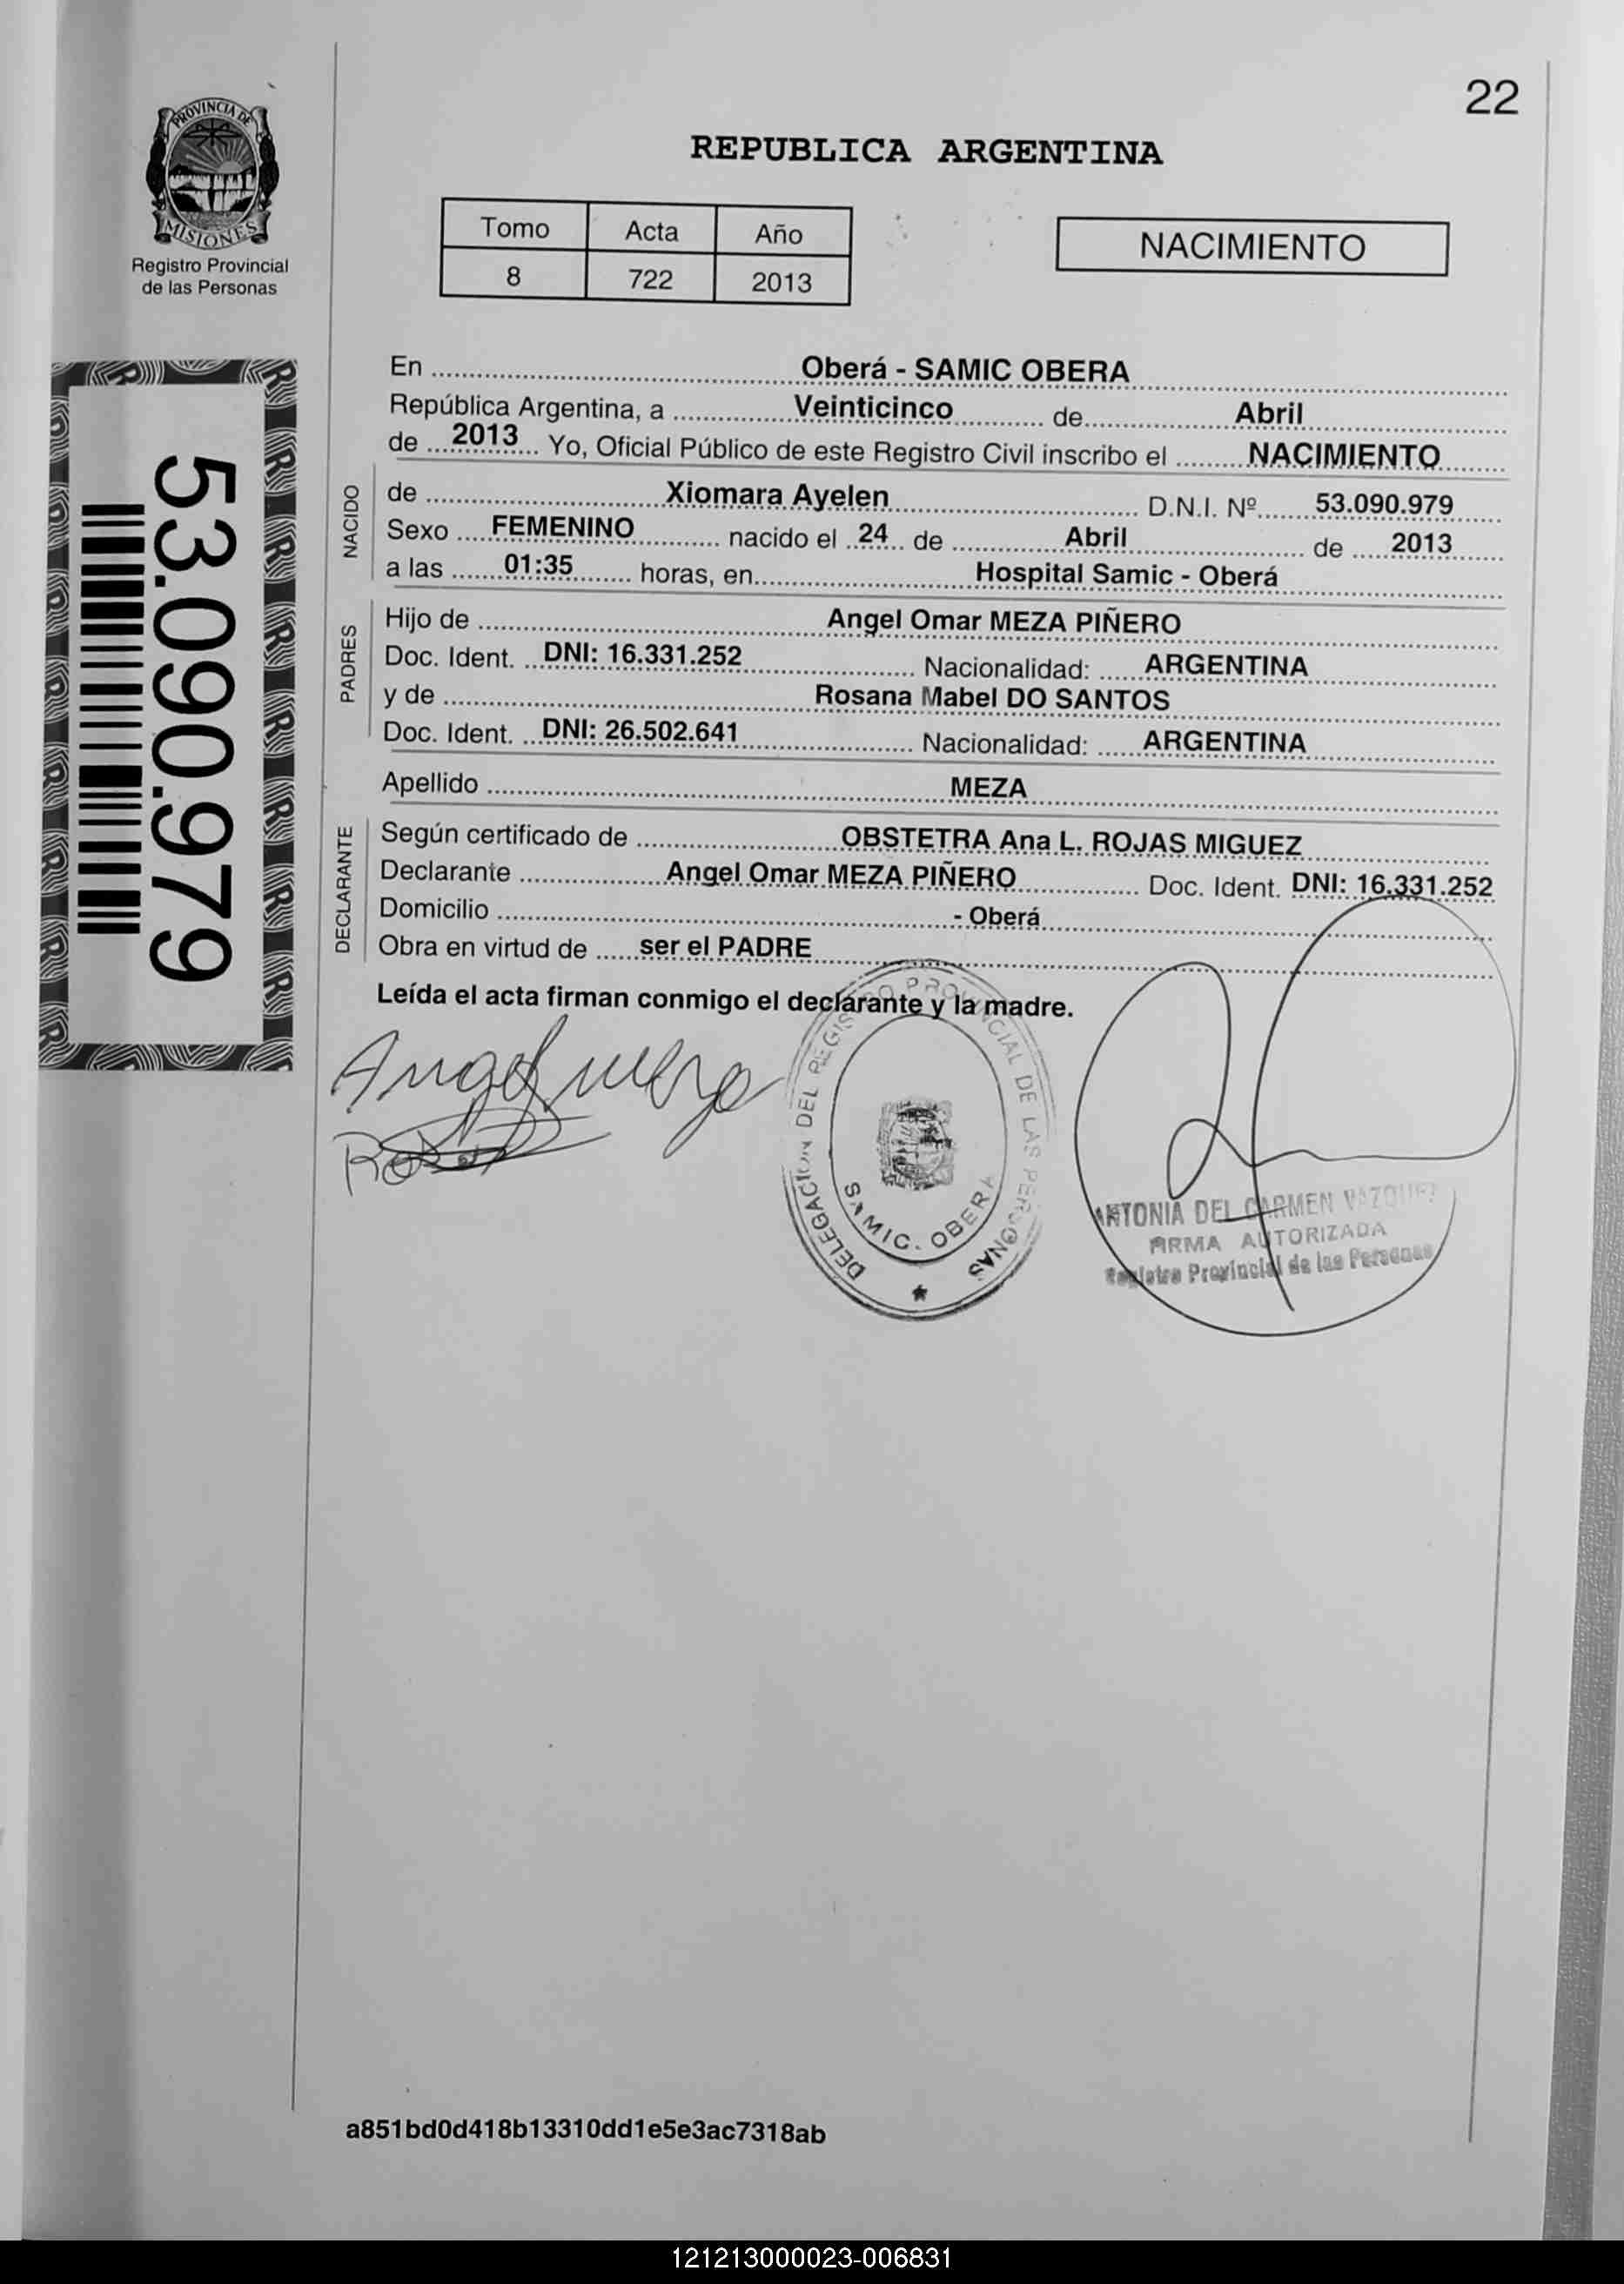 22
PROVINCIA DE
MISIONES
Registro Provincial
de las Personas
REPUBLICA ARGENTINA
Tomo Acta Año
8 722 2013
NACIMIENTO
53.090.979
En Oberá - SAMIC OBERA
República Argentina, a Veinticinco de Abril
de 2013 Yo, Oficial Público de este Registro Civil inscribo el NACIMIENTO
NACIDO
de Xiomara Ayelen D.N.I. Nº 53.090.979
Sexo FEMENINO nacido el 24 de Abril de 2013
a las 01:35 horas, en Hospital Samic - Oberá
PADRES
Hijo de Angel Omar MEZA PIÑERO
Doc. Ident. DNI: 16.331.252 Nacionalidad: ARGENTINA
y de Rosana Mabel DO SANTOS
Doc. Ident. DNI: 26.502.641 Nacionalidad: ARGENTINA
Apellido MEZA
DECLARANTE
Según certificado de OBSTETRA Ana L. ROJAS MIGUEZ
Declarante Angel Omar MEZA PIÑERO Doc. Ident. DNI: 16.331.252
Domicilio - Oberá
Obra en virtud de ser el PADRE
Leída el acta firman conmigo el declarante y la madre.
Angel meza
DELEGACION DEL REGISTRO PROVINCIAL DE LAS PERSONAS
SAMIC. OBERA
ANTONIA DEL CARMEN VAZQUEZ
FIRMA AUTORIZADA
Registro Provincial de las Personas
a851bd0d418b13310dd1e5e3ac7318ab
121213000023-006831